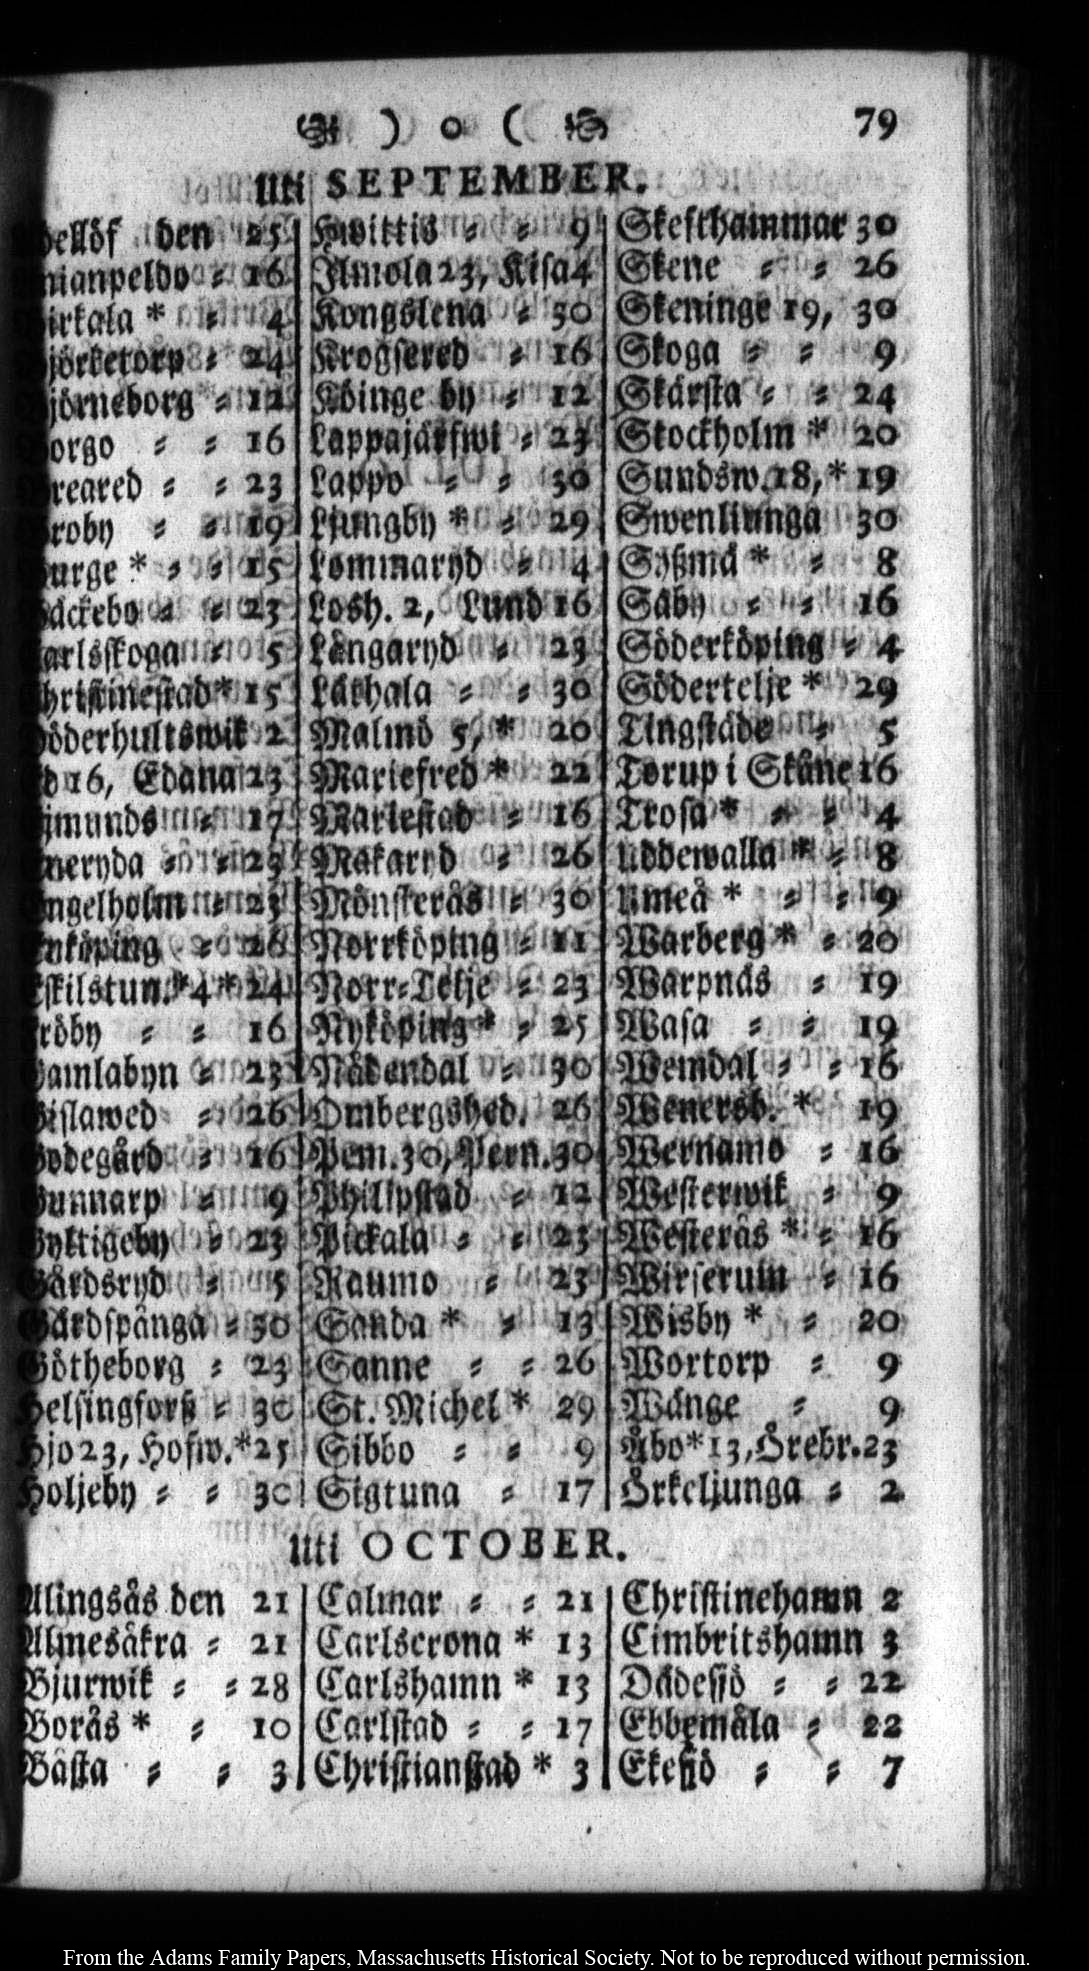 ) o ( 79
Uti SEPTEMBER.
den 25
16
* 4
24
12
16
23
19
* 15
23
5
* 15
2
16, Edana 23
17
23
23
26
Eskilstun.* 4 * 24
16
Gamlabyn 23
Gislawed 26
Godegård 16
Gunnarp 9
Gyltigeby 23
Gårdsryd 5
Gårdspånga 30
Götheborg 23
Helsingforß 30
Hjo 23, Hofw.* 25
Holjeby 30
Hwittis 9
Ilmola 23, Kisa 4
Kongslena 30
Krogsered 16
Köinge by 12
Lappajärfwi 23
Lappo 30
Ljungby * 29
Lommaryd 4
Losh. 2, Lund 16
Långaryd 23
Läthala 30
Malmö 5, * 20
Mariefred * 22
Mariestad 16
Makaryd 26
Mönsterås 30
Norrköping 11
Norr-Telje 23
Nyköping * 25
Nådendal 30
Ombergshed. 26
Pem. 30, Pern. 30
Philipstad 12
Pickala 23
Raumo 23
Sanda * 13
Sanne 26
St. Michel * 29
Sibbo 9
Sigtuna 17
Skefthammar 30
Skene 26
Skeninge 19, 30
Skoga 9
Skärsta 24
Stockholm * 20
Sundsw. 18, * 19
Swenljunga 30
Syßmä * 8
Säby 16
Söderköping 4
Södertelje * 29
Tingstäde 5
Torup i Skåne 16
Trosa * 4
Uddewalla * 8
Umeå * 9
Warberg * 20
Warpnäs 19
Wasa 19
Wemdal 16
Wenersb. * 19
Wernamo 16
Westerwik 9
Westerås * 16
Wirserum 16
Wisby * 20
Wortorp 9
Wänge 9
Åbo * 13, Örebr. 23
Örkeljunga 2
Uti OCTOBER.
Alingsås den 21
Almesåkra 21
Bjurwik 28
Borås * 10
Båsta 3
Calmar 21
Carlscrona * 13
Carlshamn * 13
Carlstad 17
Christianstad * 3
Christinehamn 2
Cimbritshamn 3
Dädesjö 22
Ebbemåla 22
Ekesjö 7
From the Adams Family Papers, Massachusetts Historical Society. Not to be reproduced without permission.